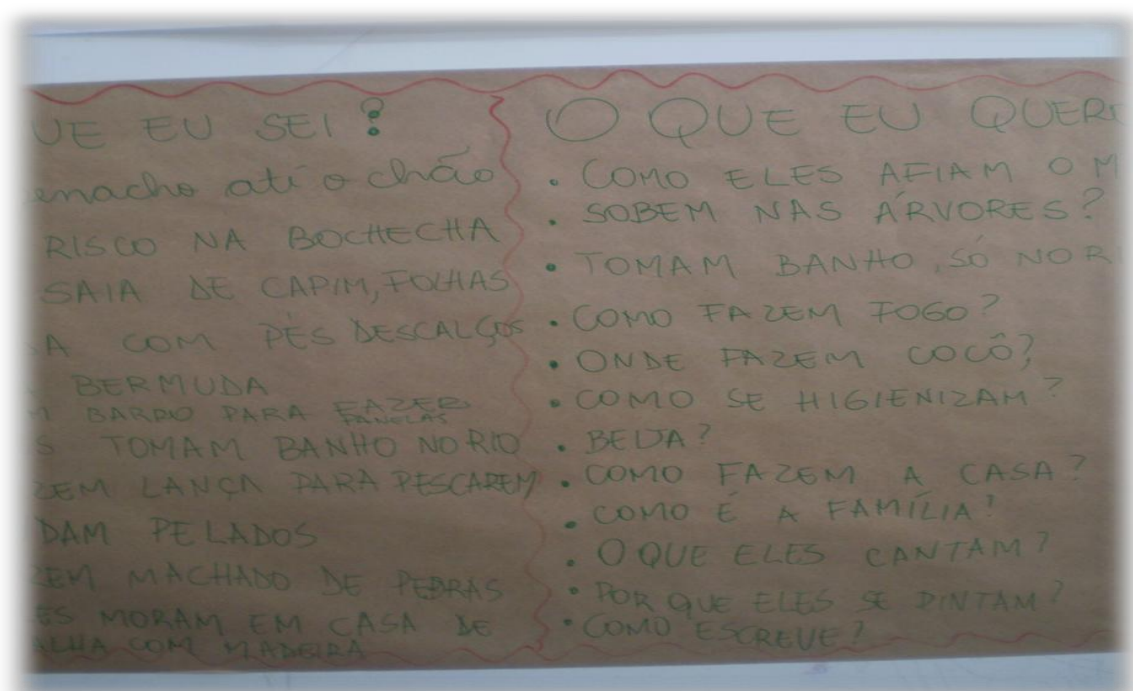 UE EU SEI?
enacho ati o chão
RISCO NA BOCHECHA
SAIA DE CAPIM, FOLHAS
A COM PÉS DESCALÇOS
BERMUDA
M BARRO PARA FAZER
PANELAS
S TOMAM BANHO NO RIO
ZEM LANÇA PARA PESCAREM
DAM PELADOS
ZEM MACHADO DE PEDRAS
ES MORAM EM CASA DE
ALHA COM MADEIRA
O QUE EU QUERO
• COMO ELES AFIAM O M
• SOBEM NAS ÁRVORES?
• TOMAM BANHO, SÓ NO R
• COMO FAZEM FOGO?
• ONDE FAZEM COCÔ?
• COMO SE HIGIENIZAM?
• BEIJA?
• COMO FAZEM A CASA?
• COMO É A FAMÍLIA?
• O QUE ELES CANTAM?
• POR QUE ELES SE PINTAM?
• COMO ESCREVE?